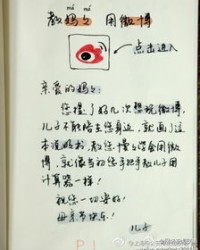 nánán
教妈妈 用微博
点击进入
亲爱的妈妈:
您提了好几次想玩微博,
儿子不能陪在您身边,就画了这
本说明书,教您慢慢学会用微
博,就像当初您手把手教儿子用
计算器一样!
祝您一切安好!
母亲节快乐!
儿子
P 1